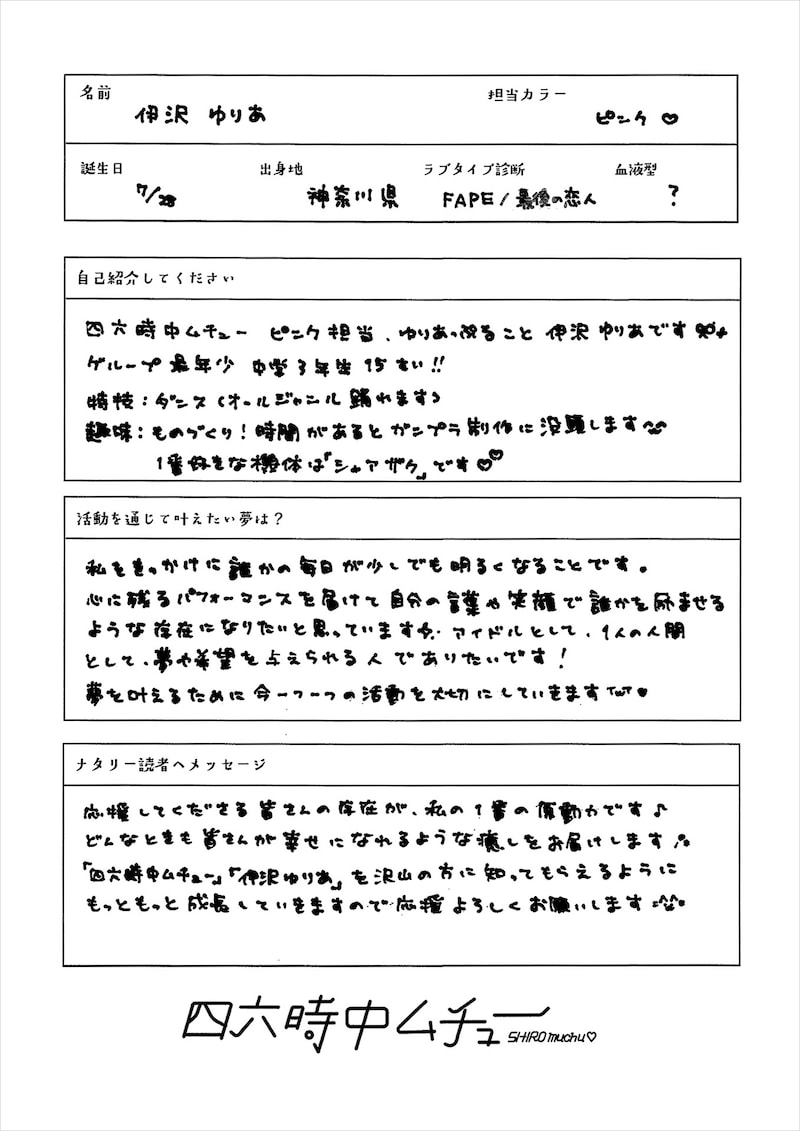 名前
伊沢 ゆりあ
担当カラー
ピンク ♡
誕生日
7/28
出身地
神奈川県
ラブタイプ診断
FAPE / 最後の恋人
血液型
?
自己紹介してください
四六時中ムチュー ピンク担当、ゆりあっぷること 伊沢 ゆりあです
グループ 最年少 中学3年生 15さい!!
特技：ダンス(オールジャンル 踊れます)
趣味：ものづくり！時間があると ガンプラ制作に没頭します
1番好きな機体は「シャアザク」です♡♡
活動を通じて叶えたい夢は？
私をきっかけに誰かの毎日が少しでも明るくなることです。
心に残るパフォーマンスを届けて自分の言葉や笑顔で誰かを励ませる
ような存在になりたいと思っています。アイドルとして、1人の人間
として、夢や希望を与えられる人でありたいです！
夢を叶えるために今一つ一つの活動を大切にしていきます TωT ♥
ナタリー読者へメッセージ
応援してくださる皆さんの存在が、私の1番の原動力です♪
どんなときも皆さんが幸せになれるような癒しをお届けします
「四六時中ムチュー」「伊沢ゆりあ」を沢山の方に知ってもらえるように
もっともっと成長していきますので応援よろしくお願いします
四六時中ムチュー
SHIRO muchu♡